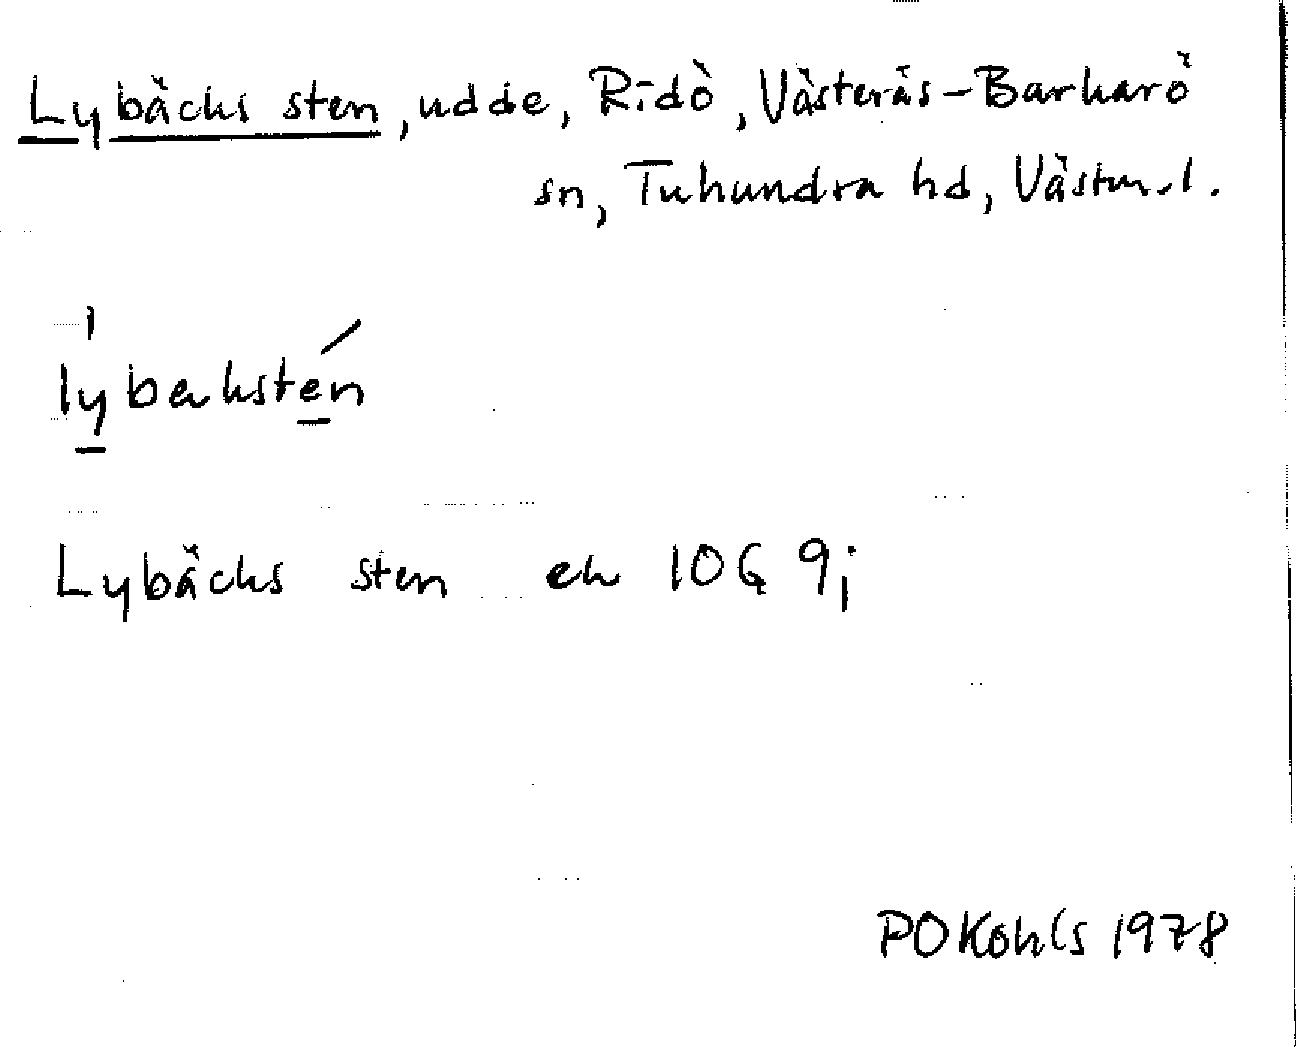 Lybäcks sten, udde, Ridö, Västerås-Barkarö
sn, Tuhundra hd, Västm.l.
lybeksten
Lybäcks sten ek 10G 9j
PO Kohls 1978